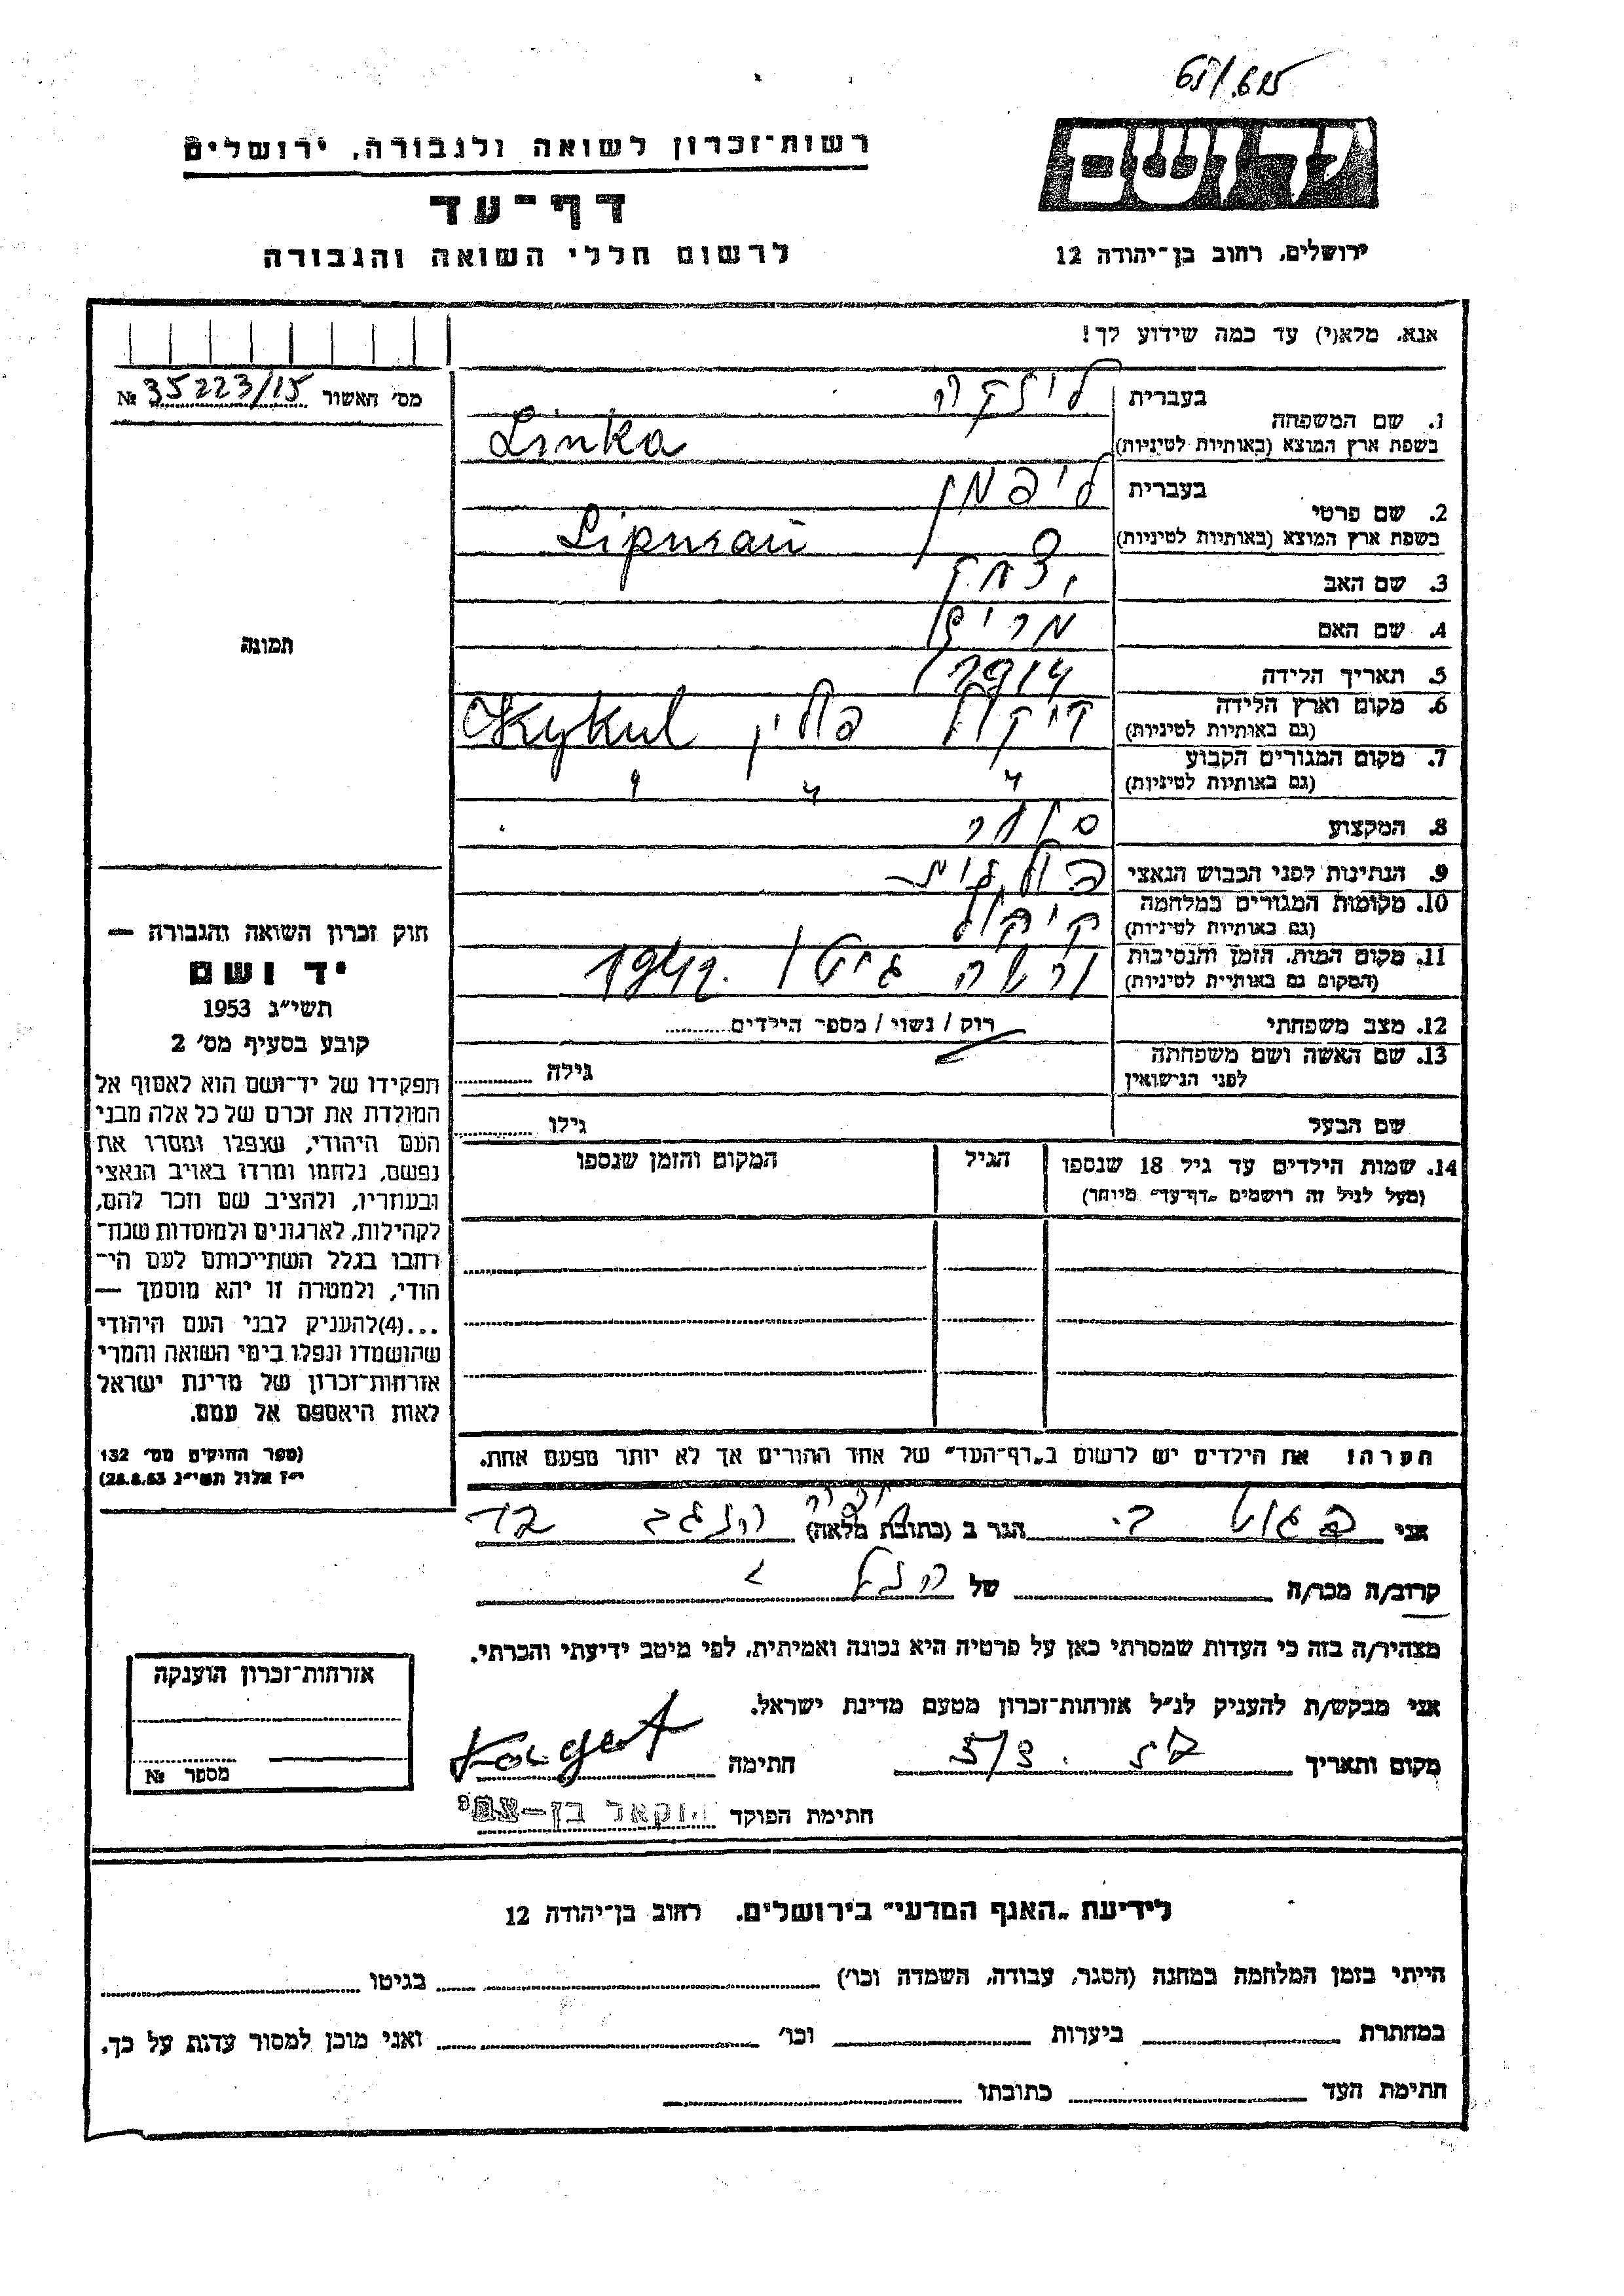 רשות־זכרון לשואה ולגבורה, ירושלים
דף־עד
לרשום חללי השואה והגבורה
ירושלים, רחוב בן־יהודה 12
אנא, מלא(י) עד כמה שידוע לך!
מס' האשור 35223/15 №
1. שם המשפחה
בעברית לינקה
בשפת ארץ המוצא (באותיות לטיניות) Linka
2. שם פרטי
בעברית ליפמן
בשפת ארץ המוצא (באותיות לטיניות) Lipman
3. שם האב יצחק
4. שם האם מרים
5. תאריך הלידה 1914
6. מקום וארץ הלידה קיקול פולין Kykul
(גם באותיות לטיניות)
7. מקום המגורים הקבוע " " "
(גם באותיות לטיניות)
8. המקצוע סוחר
9. הנתינות לפני הכבוש הנאצי פולנית
10. מקומות המגורים במלחמה קיקול
(גם באותיות לטיניות)
11. מקום המות, הזמן והנסיבות ורשה גיטו 1942
(המקום גם באותיות לטיניות)
12. מצב משפחתי רוק / נשוי / מספר הילדים
13. שם האשה ושם משפחתה
לפני הנישואין גילה
שם הבעל גילו
14. שמות הילדים עד גיל 18 שנספו הגיל המקום והזמן שנספו
(מעל לגיל זה רושמים „דף־עד" מיוחד)
הערה: את הילדים יש לרשום ב„דף־העד" של אחד ההורים אך לא יותר מפעם אחת.
תמונה
חוק זכרון השואה והגבורה —
יד ושם
תשי"ג 1953
קובע בסעיף מס' 2
תפקידו של יד־ושם הוא לאסוף אל
המולדת את זכרם של כל אלה מבני
העם היהודי, שנפלו ומסרו את
נפשם, נלחמו ומרדו באויב הנאצי
ובעוזריו, ולהציב שם וזכר להם,
לקהילות, לארגונים ולמוסדות שנח־
רבו בגלל השתייכותם לעם הי־
הודי, ולמטרה זו יהא מוסמך —
...(4)להעניק לבני העם היהודי
שהושמדו ונפלו בימי השואה והמרי
אזרחות־זכרון של מדינת ישראל
לאות היאספם אל עמם.
(ספר החוקים מס' 132
י"ז אלול תשי"ג 28.8.53)
אני הגר ב (כתובת מלאה)
קרוב/ה מכר/ה של
מצהיר/ה בזה כי העדות שמסרתי כאן על פרטיה היא נכונה ואמיתית, לפי מיטב ידיעתי והכרתי.
אני מבקש/ת להעניק לנ"ל אזרחות־זכרון מטעם מדינת ישראל.
מקום ותאריך חתימה
חתימת הפוקד
אזרחות־זכרון הוענקה
מספר №
לידיעת „האגף המדעי" בירושלים, רחוב בן־יהודה 12
הייתי בזמן המלחמה במחנה (הסגר, עבודה, השמדה וכו') בגיטו
במחתרת ביערות וכו' ואני מוכן למסור עדות על כך.
חתימת העד כתובתו